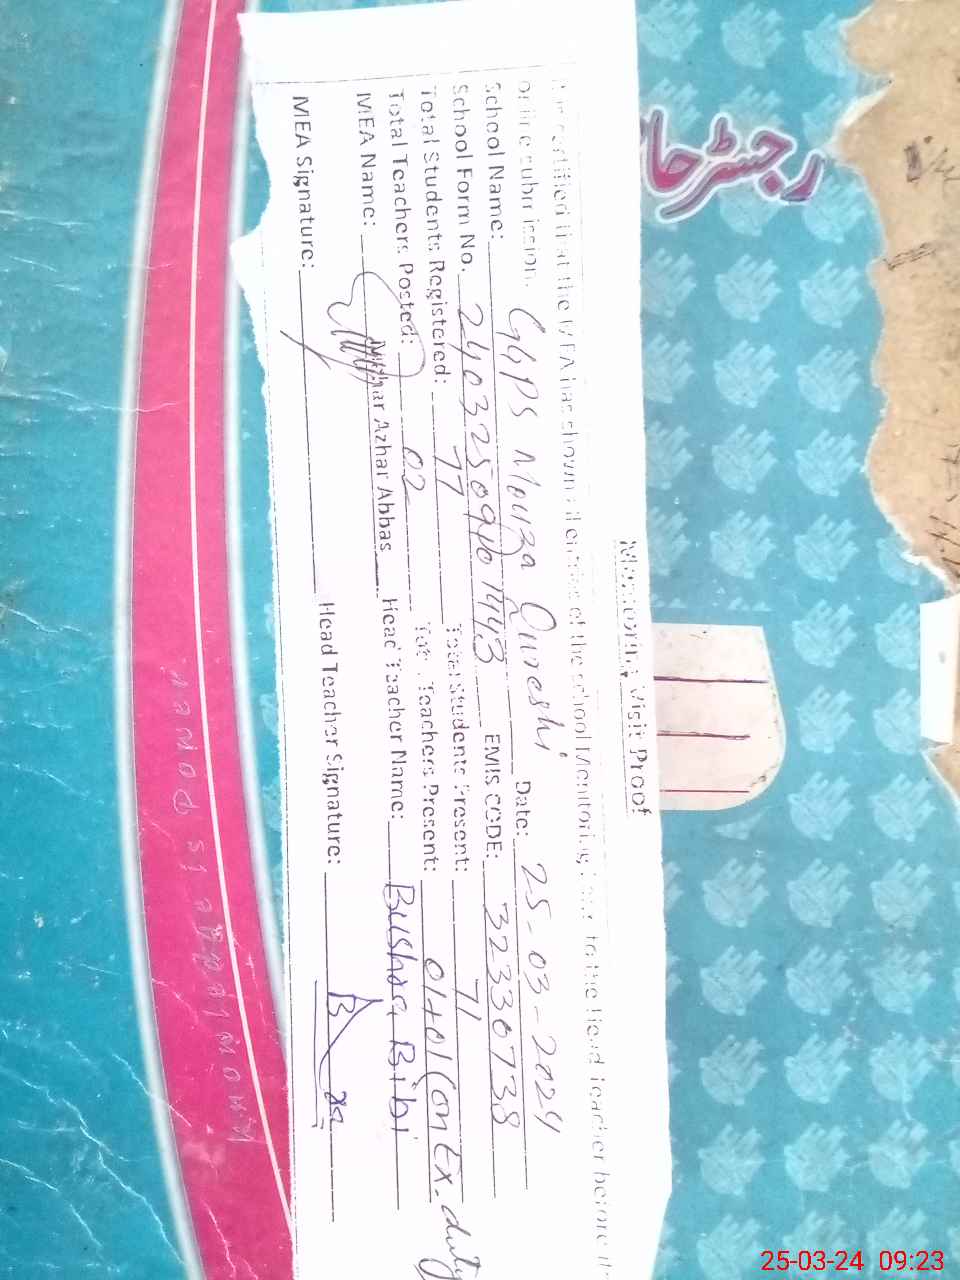 Monitoring Visit Proof
It is certified that the MEA has shown all entries of the school Monitoring to the Head Teacher before the
online submission.
School Name: GGPS Mouza Qureshi Date: 25-03-2024
School Form No. EMIS CODE: 32330738
Total Students Registered: 77 Total Students Present: 71
Total Teachers Posted: 02 Total Teachers Present: 01+01 (on Ex. duty
MEA Name: Azhar Abbas Head Teacher Name: Bushra Bibi
MEA Signature: Head Teacher Signature:
رجسٹر حا
25-03-24 09:23